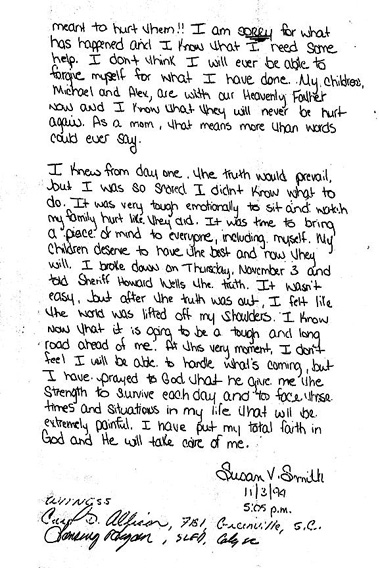 meant to hurt them!! I am sorry for what
has happened and I know that I need some
help. I don't think I will ever be able to
forgive myself for what I have done. My children,
Michael and Alex, are with our Heavenly Father
now and I know that they will never be hurt
again. As a mom, that means more than words
could ever say.
I knew from day one, the truth would prevail,
but I was so scared I didn't know what to
do. It was very tough emotionally to sit and watch
my family hurt like they did. It was time to bring
a piece of mind to everyone, including myself. My
children deserve to have the best and now they
will. I broke down on Thursday, November 3 and
told Sheriff Howard Wells the truth. It wasn't
easy, but after the truth was out, I felt like
the world was lifted off my shoulders. I know
now that it is going to be a tough and long
road ahead of me. At this very moment, I don't
feel I will be able to handle what's coming, but
I have prayed to God that he give me the
strength to survive each day and to face those
times and situations in my life that will be
extremely painful. I have put my total faith in
God and He will take care of me.
Susan V. Smith
11/3/94
5:05 p.m.
WITNESS
Allison, FBI, Greenville, S.C.
SLED,